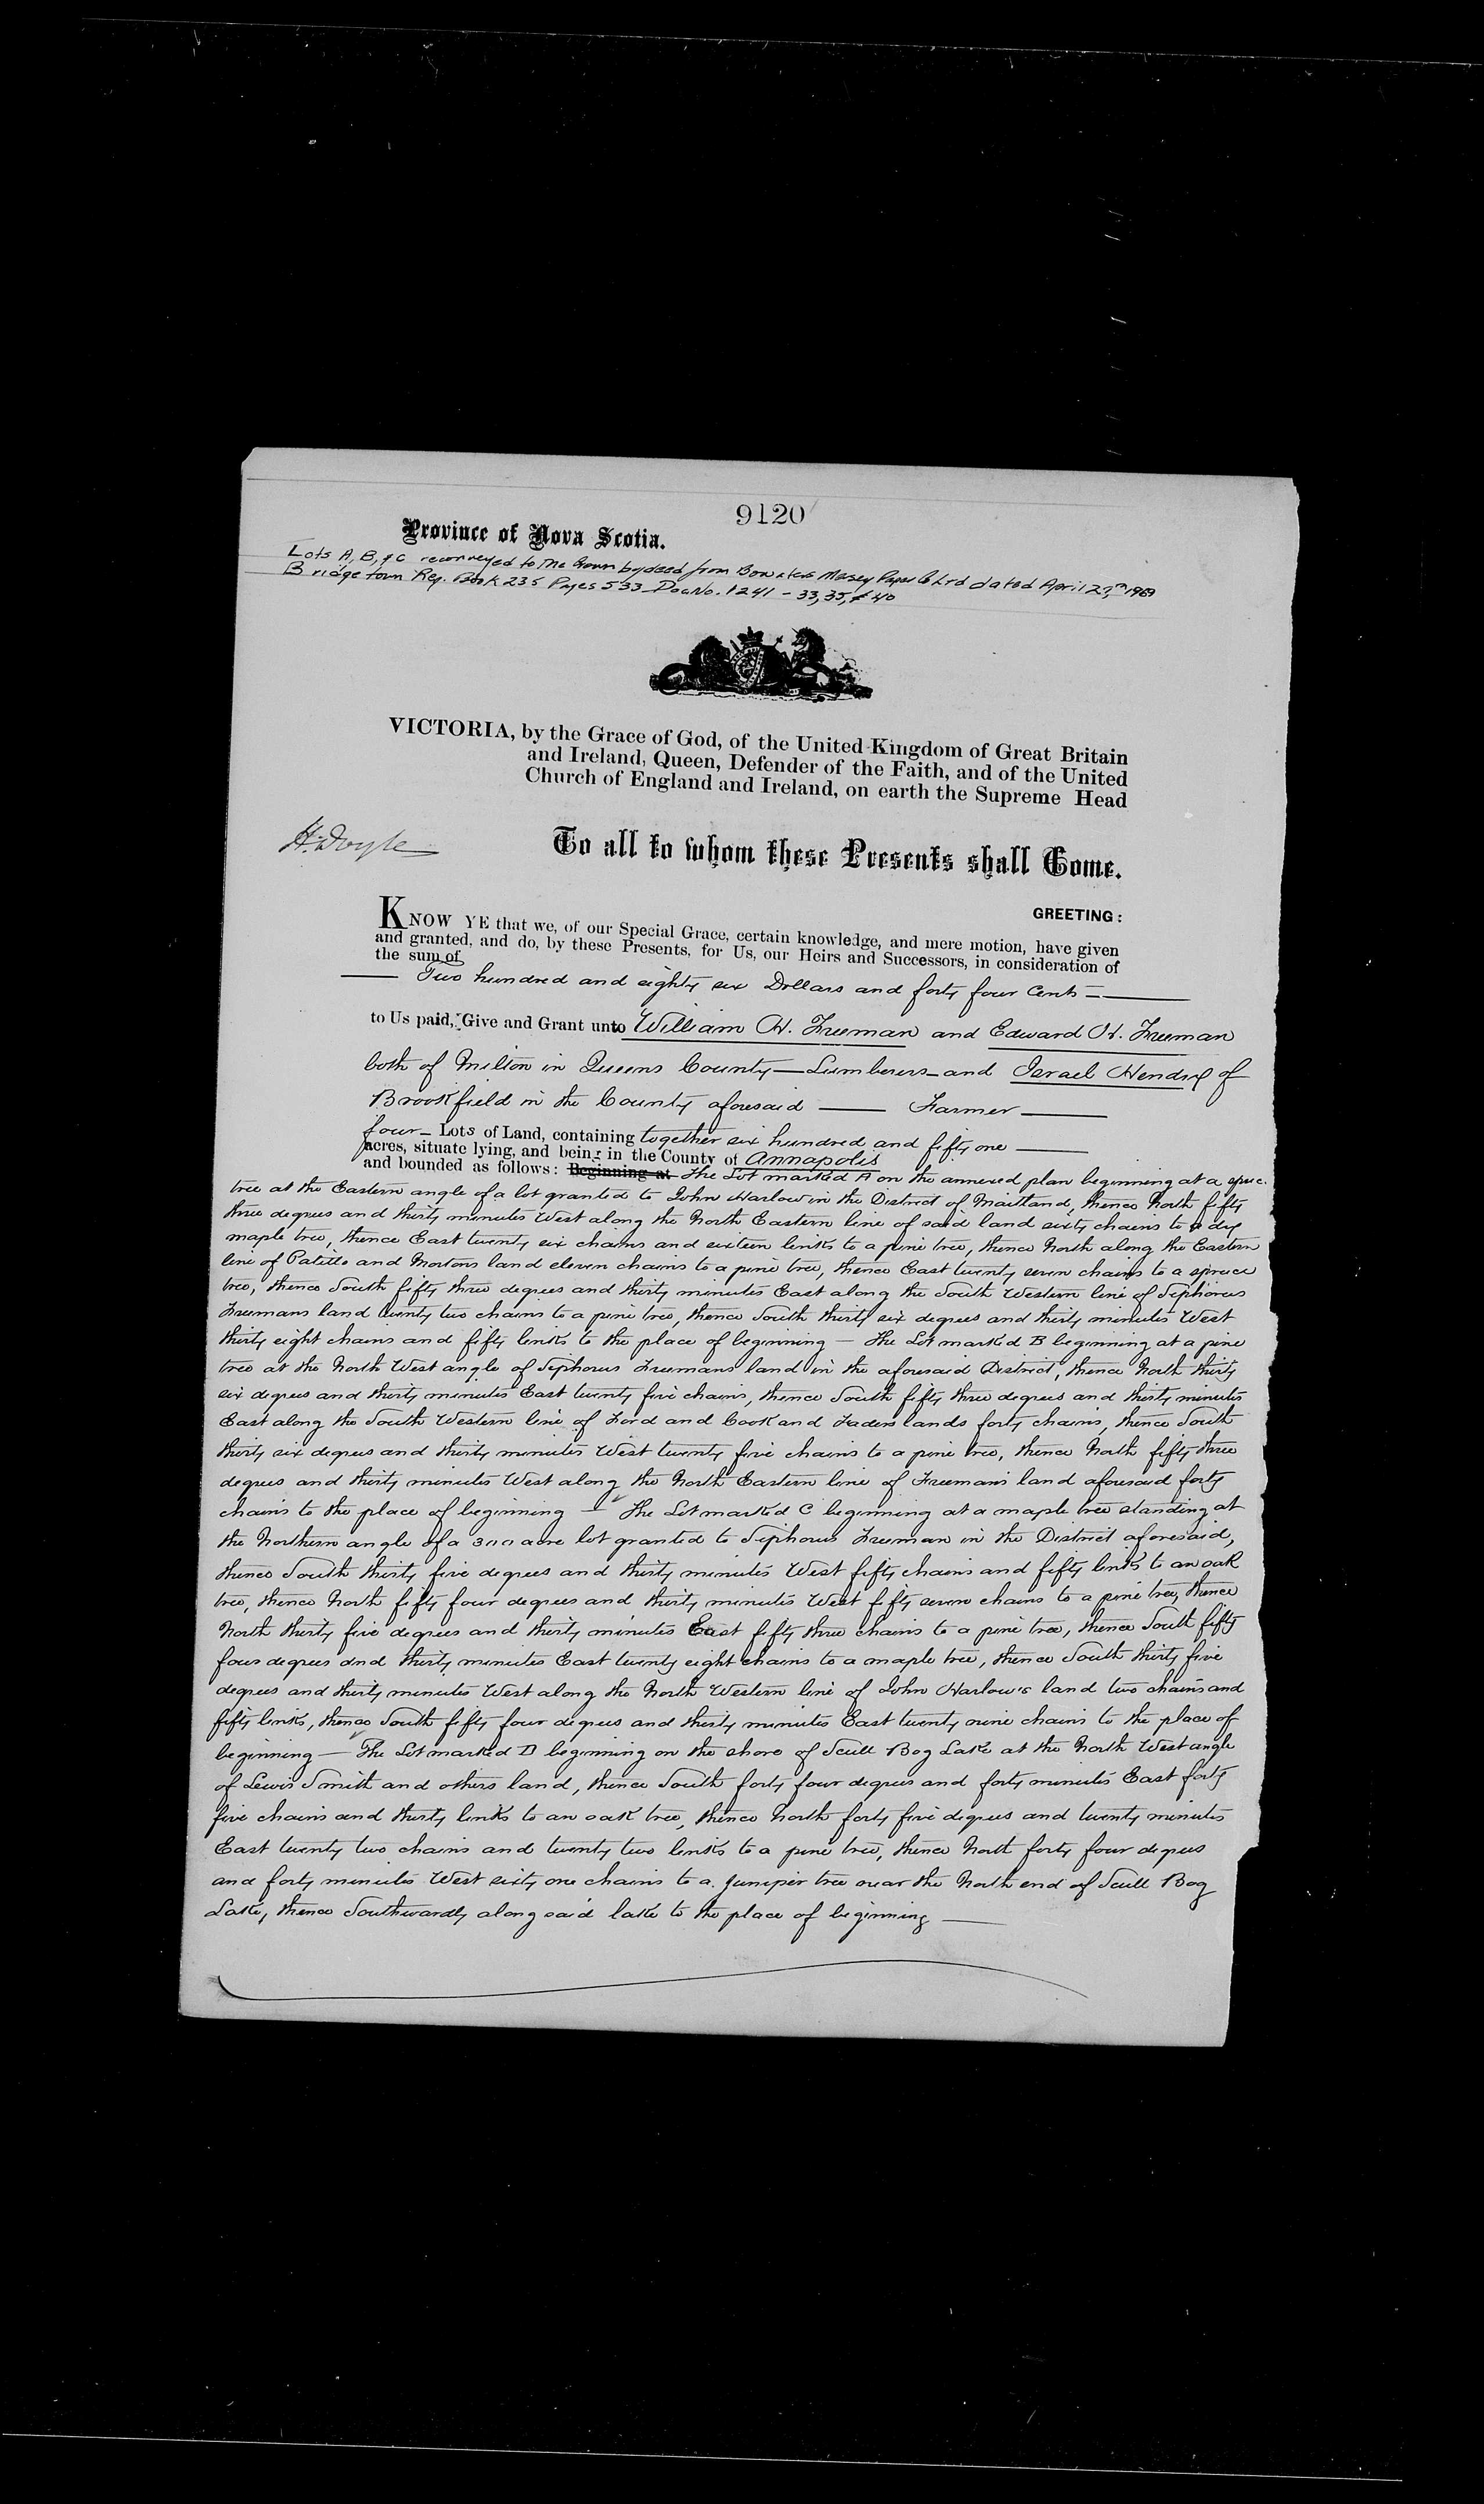 9120
Province of Nova Scotia.
Lots A, B, & C reconveyed to The Crown by deed from Bowaters Mersey Paper Co Ltd dated April 29,
Bridgetown Reg. Book 235 Pages 533 Doc No. 1241 - 33, 35, & 40
VICTORIA, by the Grace of God, of the United Kingdom of Great Britain
and Ireland, Queen, Defender of the Faith, and of the United
Church of England and Ireland, on earth the Supreme Head
H. Doyle
To all to whom these Presents shall Come.
GREETING:
KNOW YE that we, of our Special Grace, certain knowledge, and mere motion, have given
and granted, and do, by these Presents, for Us, our Heirs and Successors, in consideration of
the sum of
Two hundred and eighty six Dollars and forty four Cents
to Us paid, Give and Grant unto William H. Freeman and Edward H. Freeman
both of Milton in Queens County — Lumberers — and Israel Hendry of
Brookfield in the County aforesaid — Farmer —
four — Lots of Land, containing together six hundred and fifty one —
acres, situate lying, and being in the County of Annapolis
and bounded as follows: Beginning at The Lot marked A on the annexed plan beginning at a spruce
tree at the Eastern angle of a lot granted to John Harlow in the District of Maitland, thence North fifty
three degrees and thirty minutes West along the North Eastern line of said land sixty chains to a dry
maple tree, thence East twenty six chains and sixteen links to a pine tree, thence North along the Eastern
line of Patillo and Mortons land eleven chains to a pine tree, thence East twenty seven chains to a spruce
tree, thence South fifty three degrees and thirty minutes East along the South Western line of Siphorus
Freemans land twenty two chains to a pine tree, thence South thirty six degrees and thirty minutes West
thirty eight chains and fifty links to the place of beginning — The Lot marked B beginning at a pine
tree at the North West angle of Siphorus Freemans land in the aforesaid District, thence North thirty
six degrees and thirty minutes East twenty five chains, thence South fifty three degrees and thirty minutes
East along the South Western line of Ford and Cook and Faders lands forty chains, thence South
thirty six degrees and thirty minutes West twenty five chains to a pine tree, thence North fifty three
degrees and thirty minutes West along the North Eastern line of Freemans land aforesaid forty
chains to the place of beginning — The Lot marked C beginning at a maple tree standing at
the Northern angle of a 300 acre lot granted to Siphorus Freeman in the District aforesaid,
thence South thirty five degrees and thirty minutes West fifty chains and fifty links to an oak
tree, thence North fifty four degrees and thirty minutes West fifty seven chains to a pine tree, thence
North thirty five degrees and thirty minutes East fifty three chains to a pine tree, thence South fifty
four degrees and thirty minutes East twenty eight chains to a maple tree, thence South thirty five
degrees and thirty minutes West along the North Western line of John Harlow's land two chains and
fifty links, thence South fifty four degrees and thirty minutes East twenty nine chains to the place of
beginning — The Lot marked D beginning on the shore of Scull Bog Lake at the North West angle
of Lewis Smith and others land, thence South forty four degrees and forty minutes East forty
five chains and thirty links to an oak tree, thence North forty five degrees and twenty minutes
East twenty two chains and twenty two links to a pine tree, thence North forty four degrees
and forty minutes West sixty one chains to a juniper tree near the North end of Scull Bog
Lake, thence Southwardly along said lake to the place of beginning —